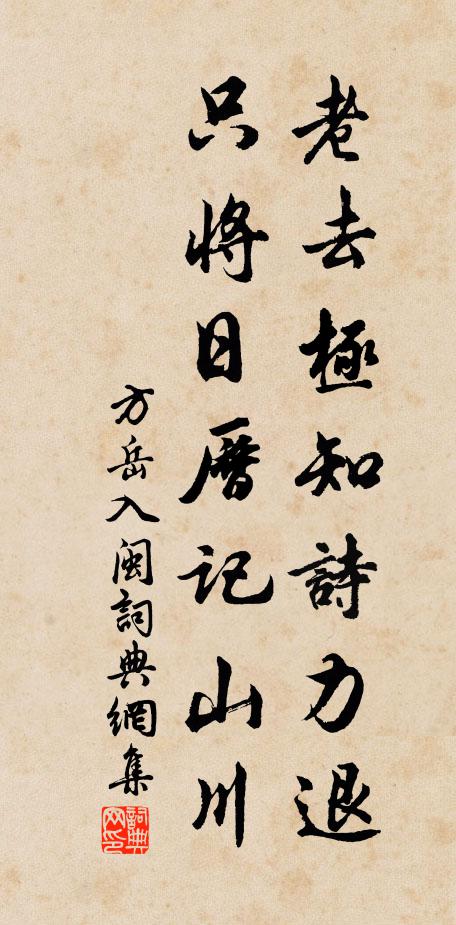 老去極知詩力退
只將日曆記山川
方岳入閩詞典網集
詞典網印